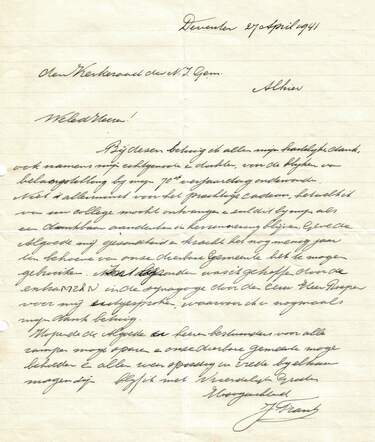 Deventer 27 April 1941
den Kerkeraad der N. I. Gem.
Alhier
WelEd Heeren!
Bij dezen betuig ik allen mijn hartelijke dank,
ook namens mijn echtgenoote en dochter, voor de blijken van
belangstelling bij mijn 70ste verjaardag ondervonden
Niet 't allerminst voor het prachtige cadeau, hetwelk ik
van uw college mocht ontvangen en zal dit bij mij als
een dankbaar aandenken in herinnering blijven. Geve de
Algoede mij gezondheid en kracht het nog menig jaar
ten behoeve van onze dierbare Gemeente te mogen
gebruiken. was ik door de
in de synagoge door den Heer
voor mij uitgesproken, waarvoor ik u nogmaals
mijn dank betuig.
Hopende de Algoede heeren bestuurders voor alle
rampen moge sparen en onze dierbare gemeente moge
behoeden en allen weer spoedig in vrede bij elkaar
mogen zijn blijf ik met Vriendelijke Groeten
Hoogachtend
J. Frank